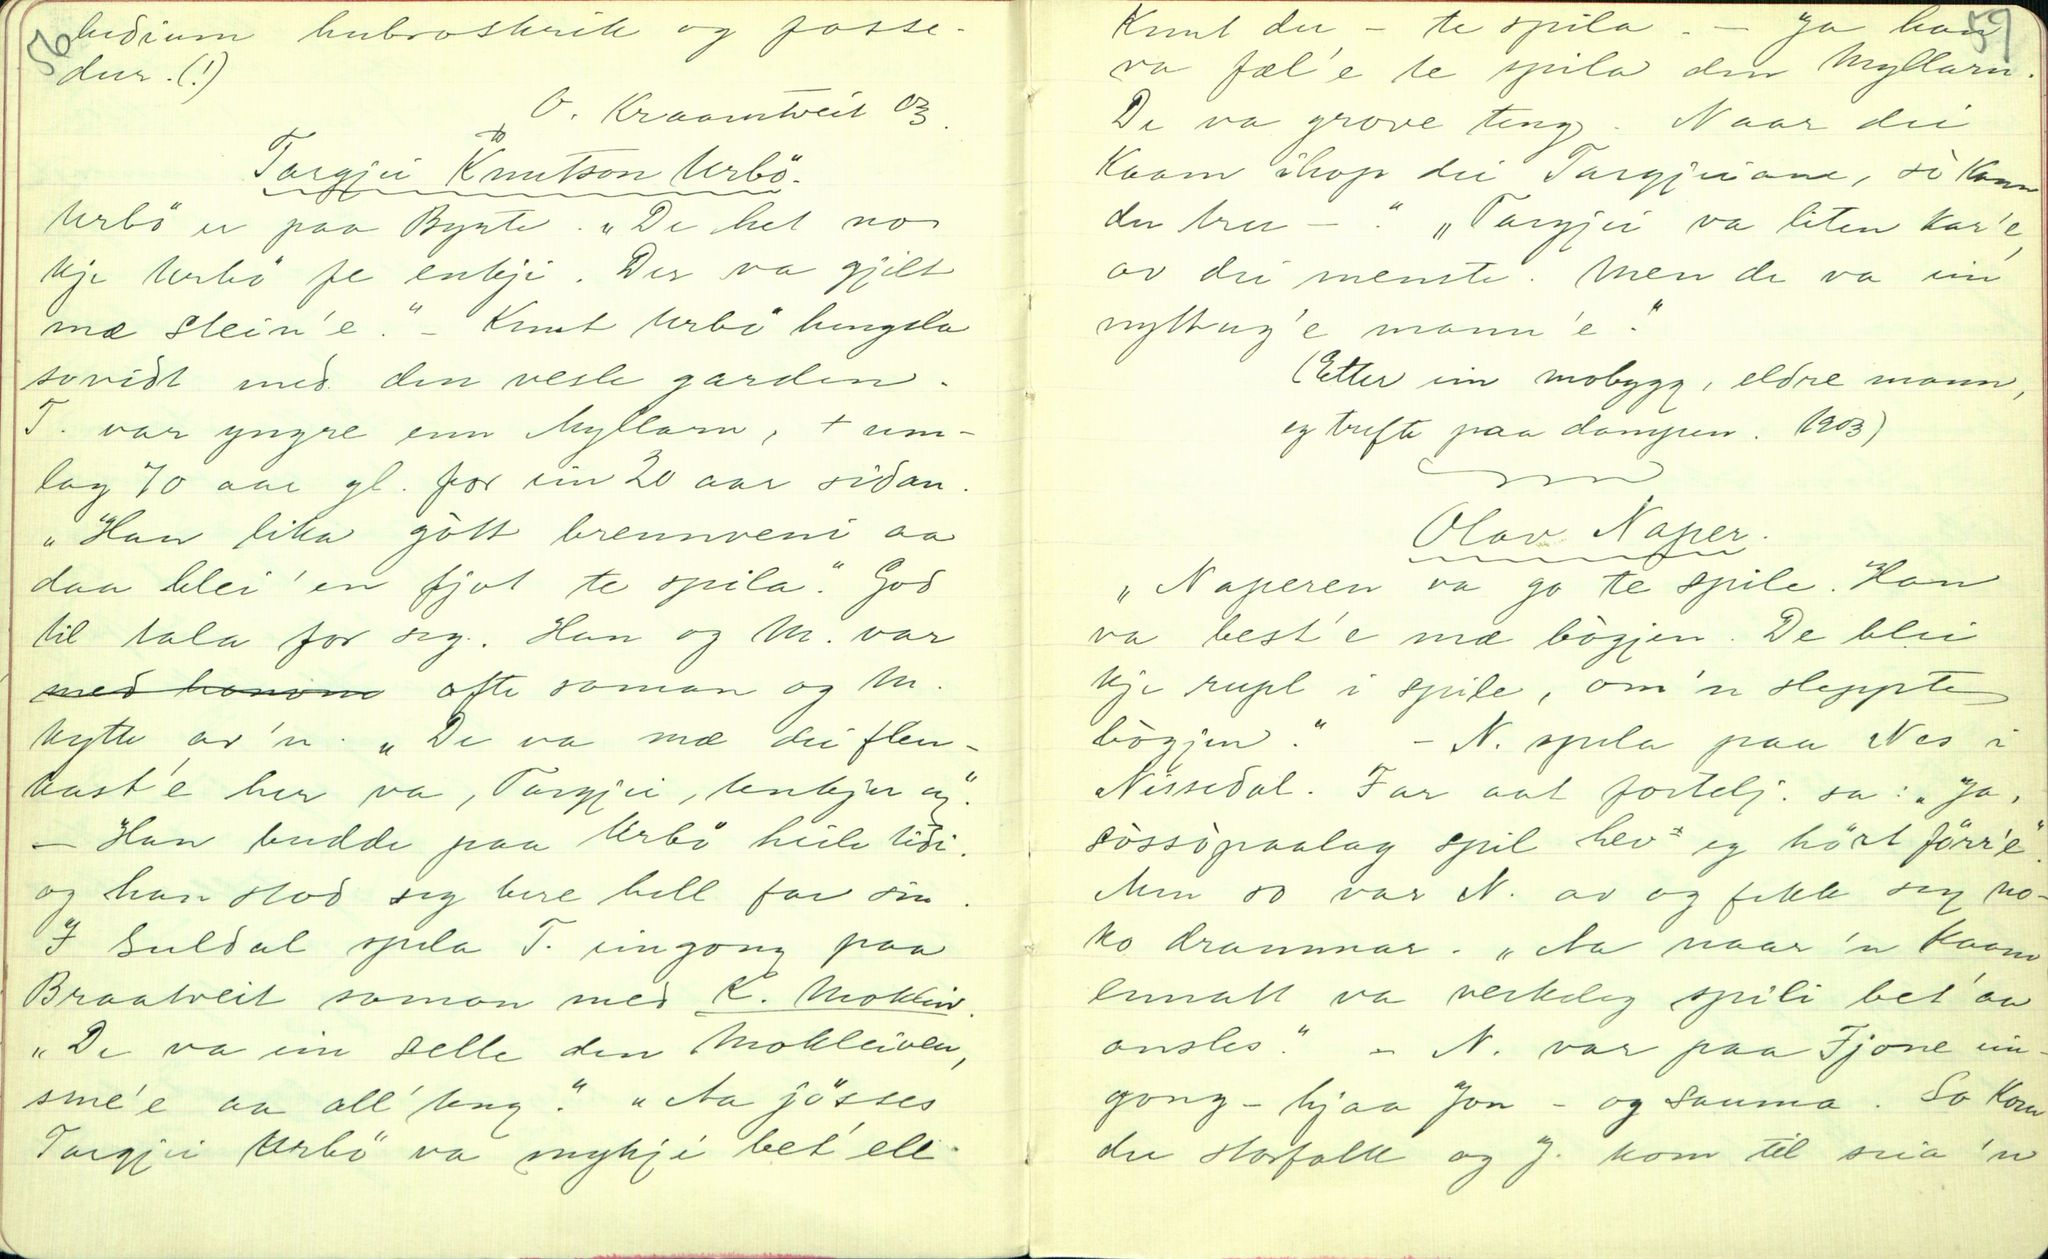 56
lidium hubroskrik og fosse-
dur. (!)
O. Kraamtveit 03.
Targjei Knutson Urbö.
Urbö er paa Byrte. "De het no
kje Urbö fe enkji. Der va gjilt
mæ stein'e." – Knut Urbö lengda
sovidt med den vesle garden.
T. var yngre enn Myllarn, + um-
lag 70 aar gl. for ein 20 aar sidan.
"Han lika gòtt brennveni aa
daa blei 'en fjot te spila." God
til tala for seg. Han og M. var
med honom ofte saman og M.
kytte av'n. "De va mæ dei flen-
kast'e her va, Targjei, tenkjer eg".
– Han budde paa Urbö heile tidi.
og han stod seg bere hell far sin.
I Suldal spela T. eingong paa
Braatveit saman med K. Mokleiv.
"De va ein selle den Mokleiven,
sme'e aa all' ting." "Aa jösses
Targjei Urbö va mykji bet' ell
59
Knut du – te spila. – Ja han
va fæl'e te spila den Myllarn.
De va grove ting. Naar dei
kaam ihop dei Targjeiane, sò kann
du tru –." "Targjei va liten kar'e,
av dei menste. Men de va ein
nyttug'e mann'e."
(Etter ein mobygg, eldre mann,
eg trefte paa dampen. 1903)
Olav Naper.
"Naperen va go te spile. Han
va best'e mæ bògjen. De blei
kje rupl i spile, om'n sleppte
bògjen." – N. spela paa Nes i
Nissedal. Far aat fortelj. sa: "Ja,
sòssòpaalag spil hev eg hört förr'e".
Men so var N. av og fekk seg no-
ko drammar. "Aa naar 'n kaam
ennatt va verkeleg spili bet' aa
ansles." – N. var paa Fjone ein-
gong – hjaa Jon – og sauma. So kom
der storfolk og J. kom til sia 'n